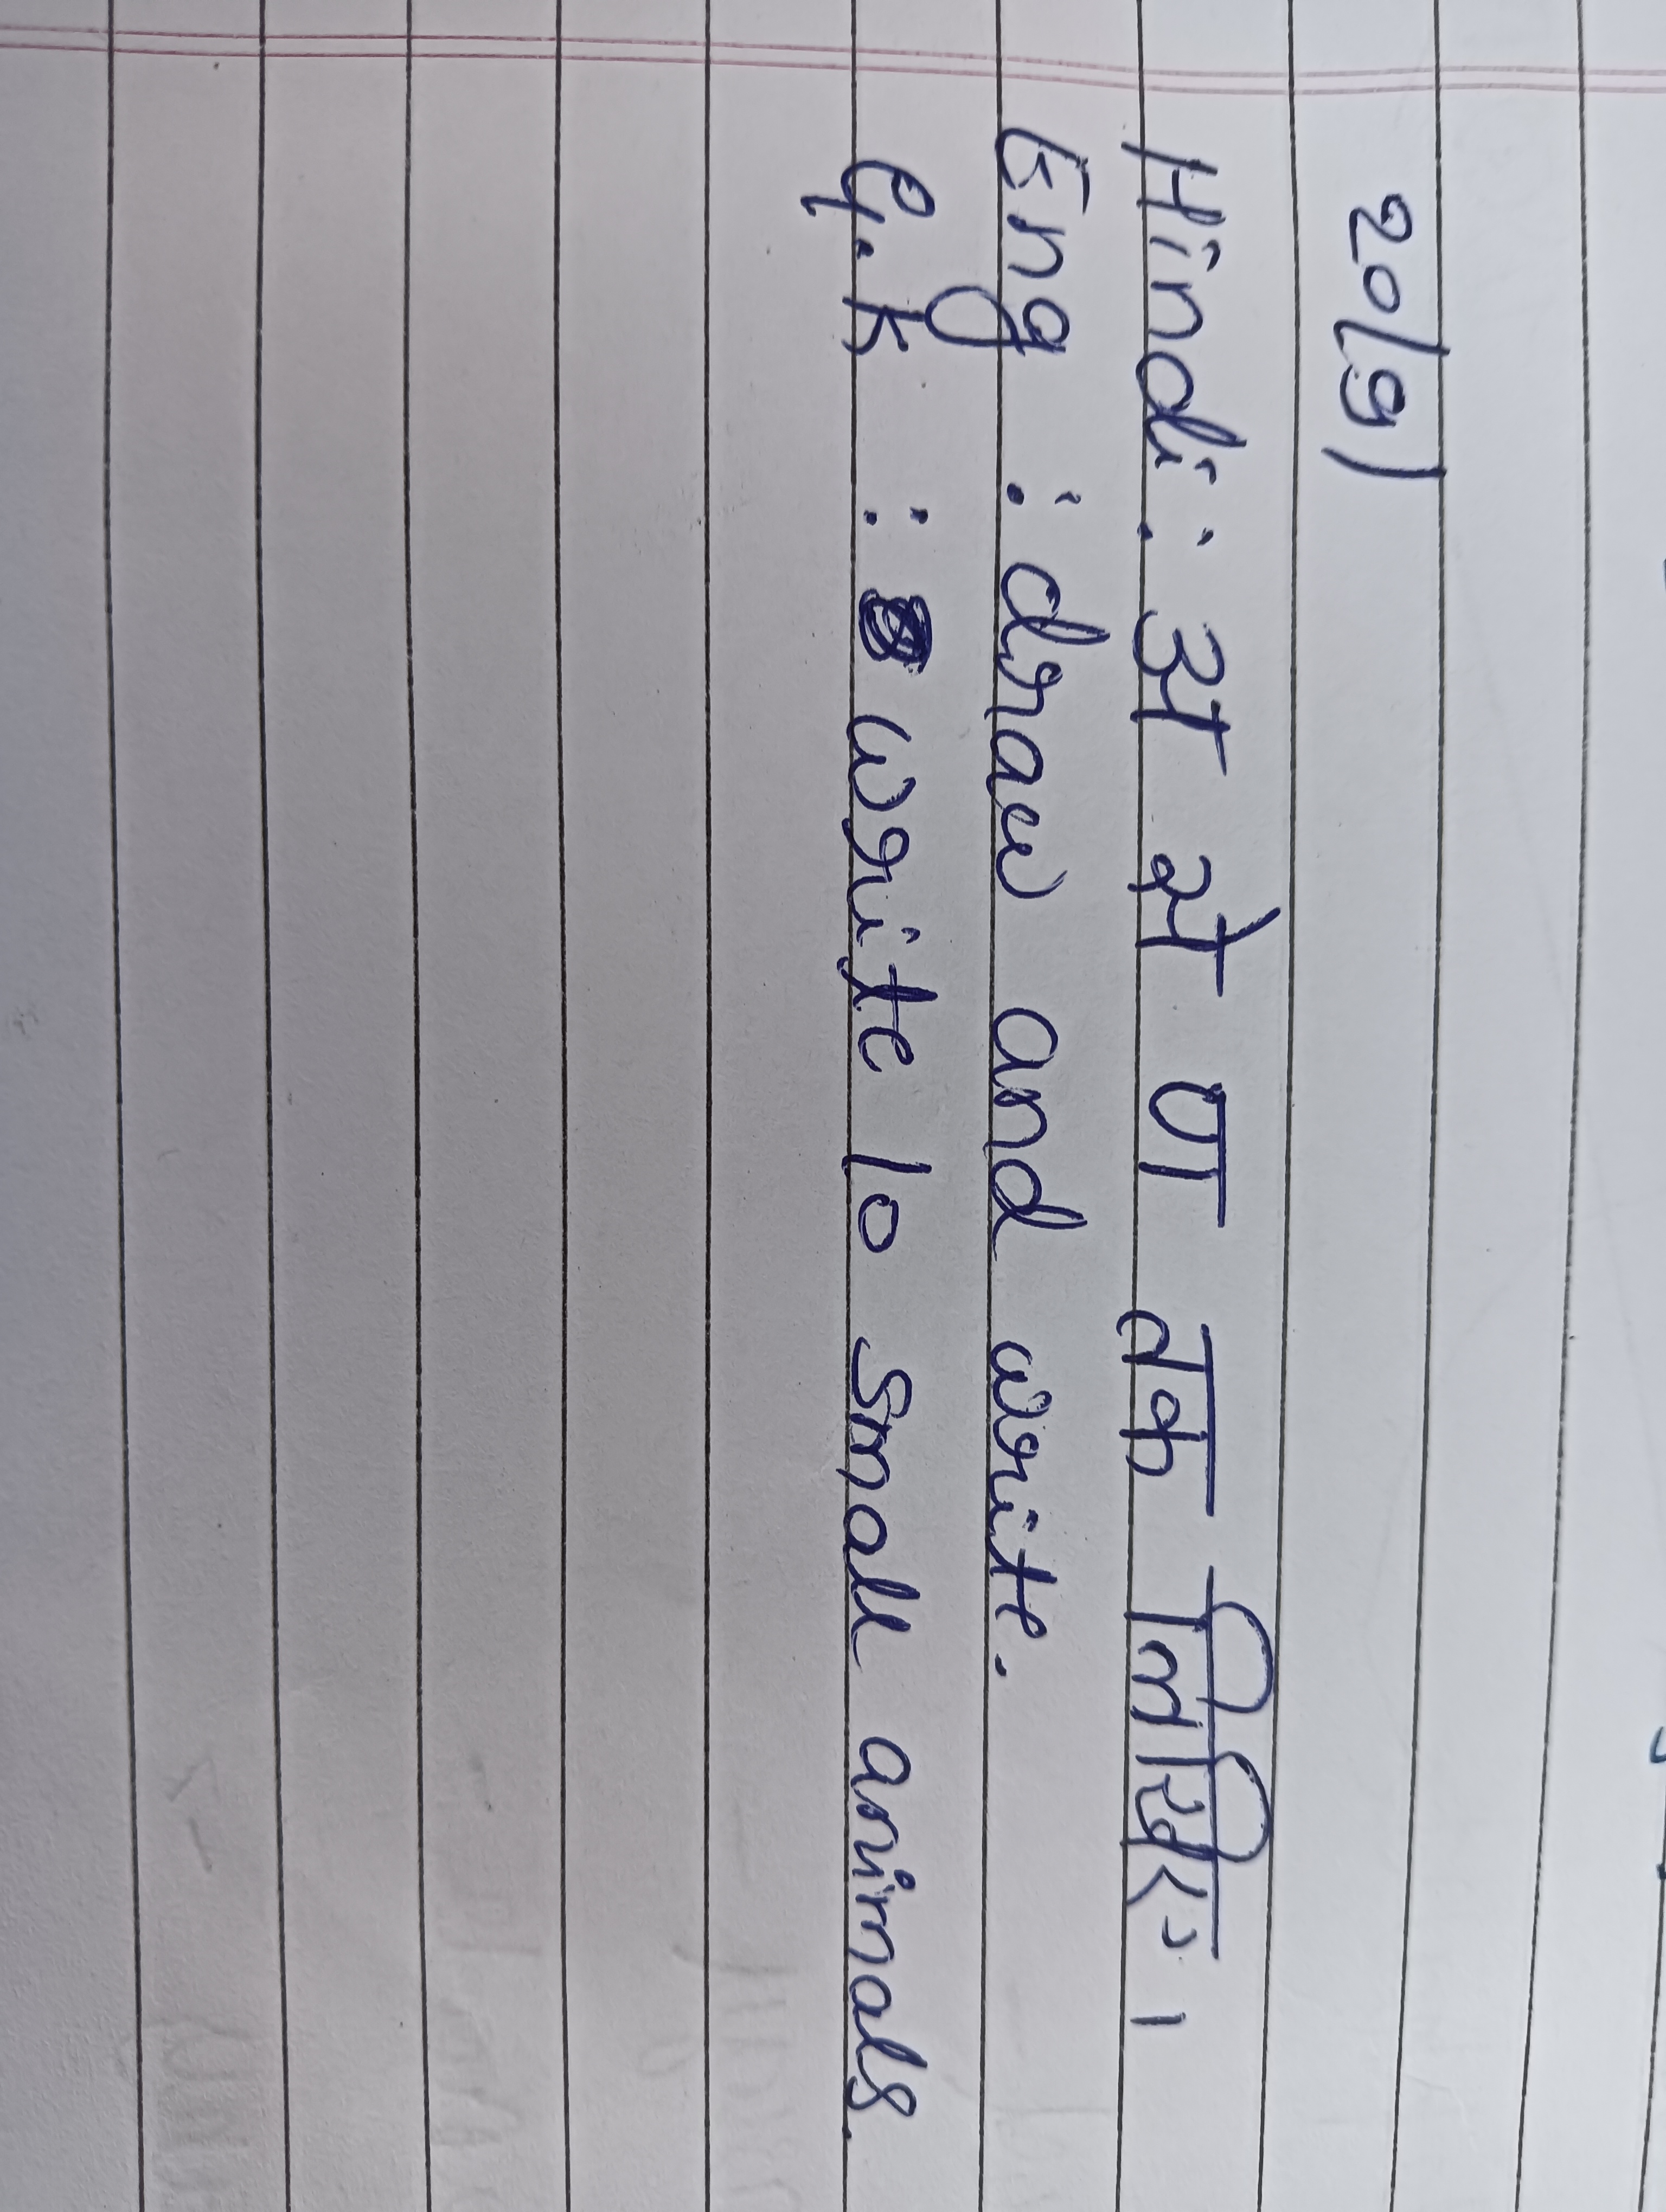 20/9)
Hindi: अ से ण तक लिखिए।
Eng : draw and write.
G.K : write 10 small animals.